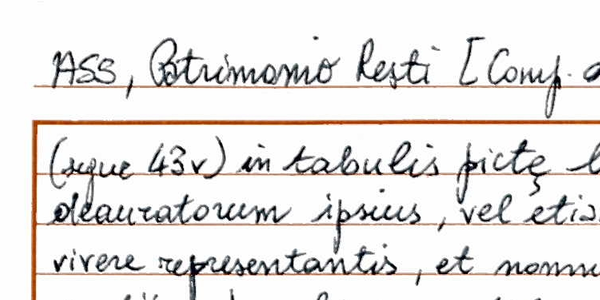 ASS, Patrimonio Resti [Comp.
(segue 43v) in tabulis pictę
deauratorum ipsius, vel etia
vivere representantis, et nonnu